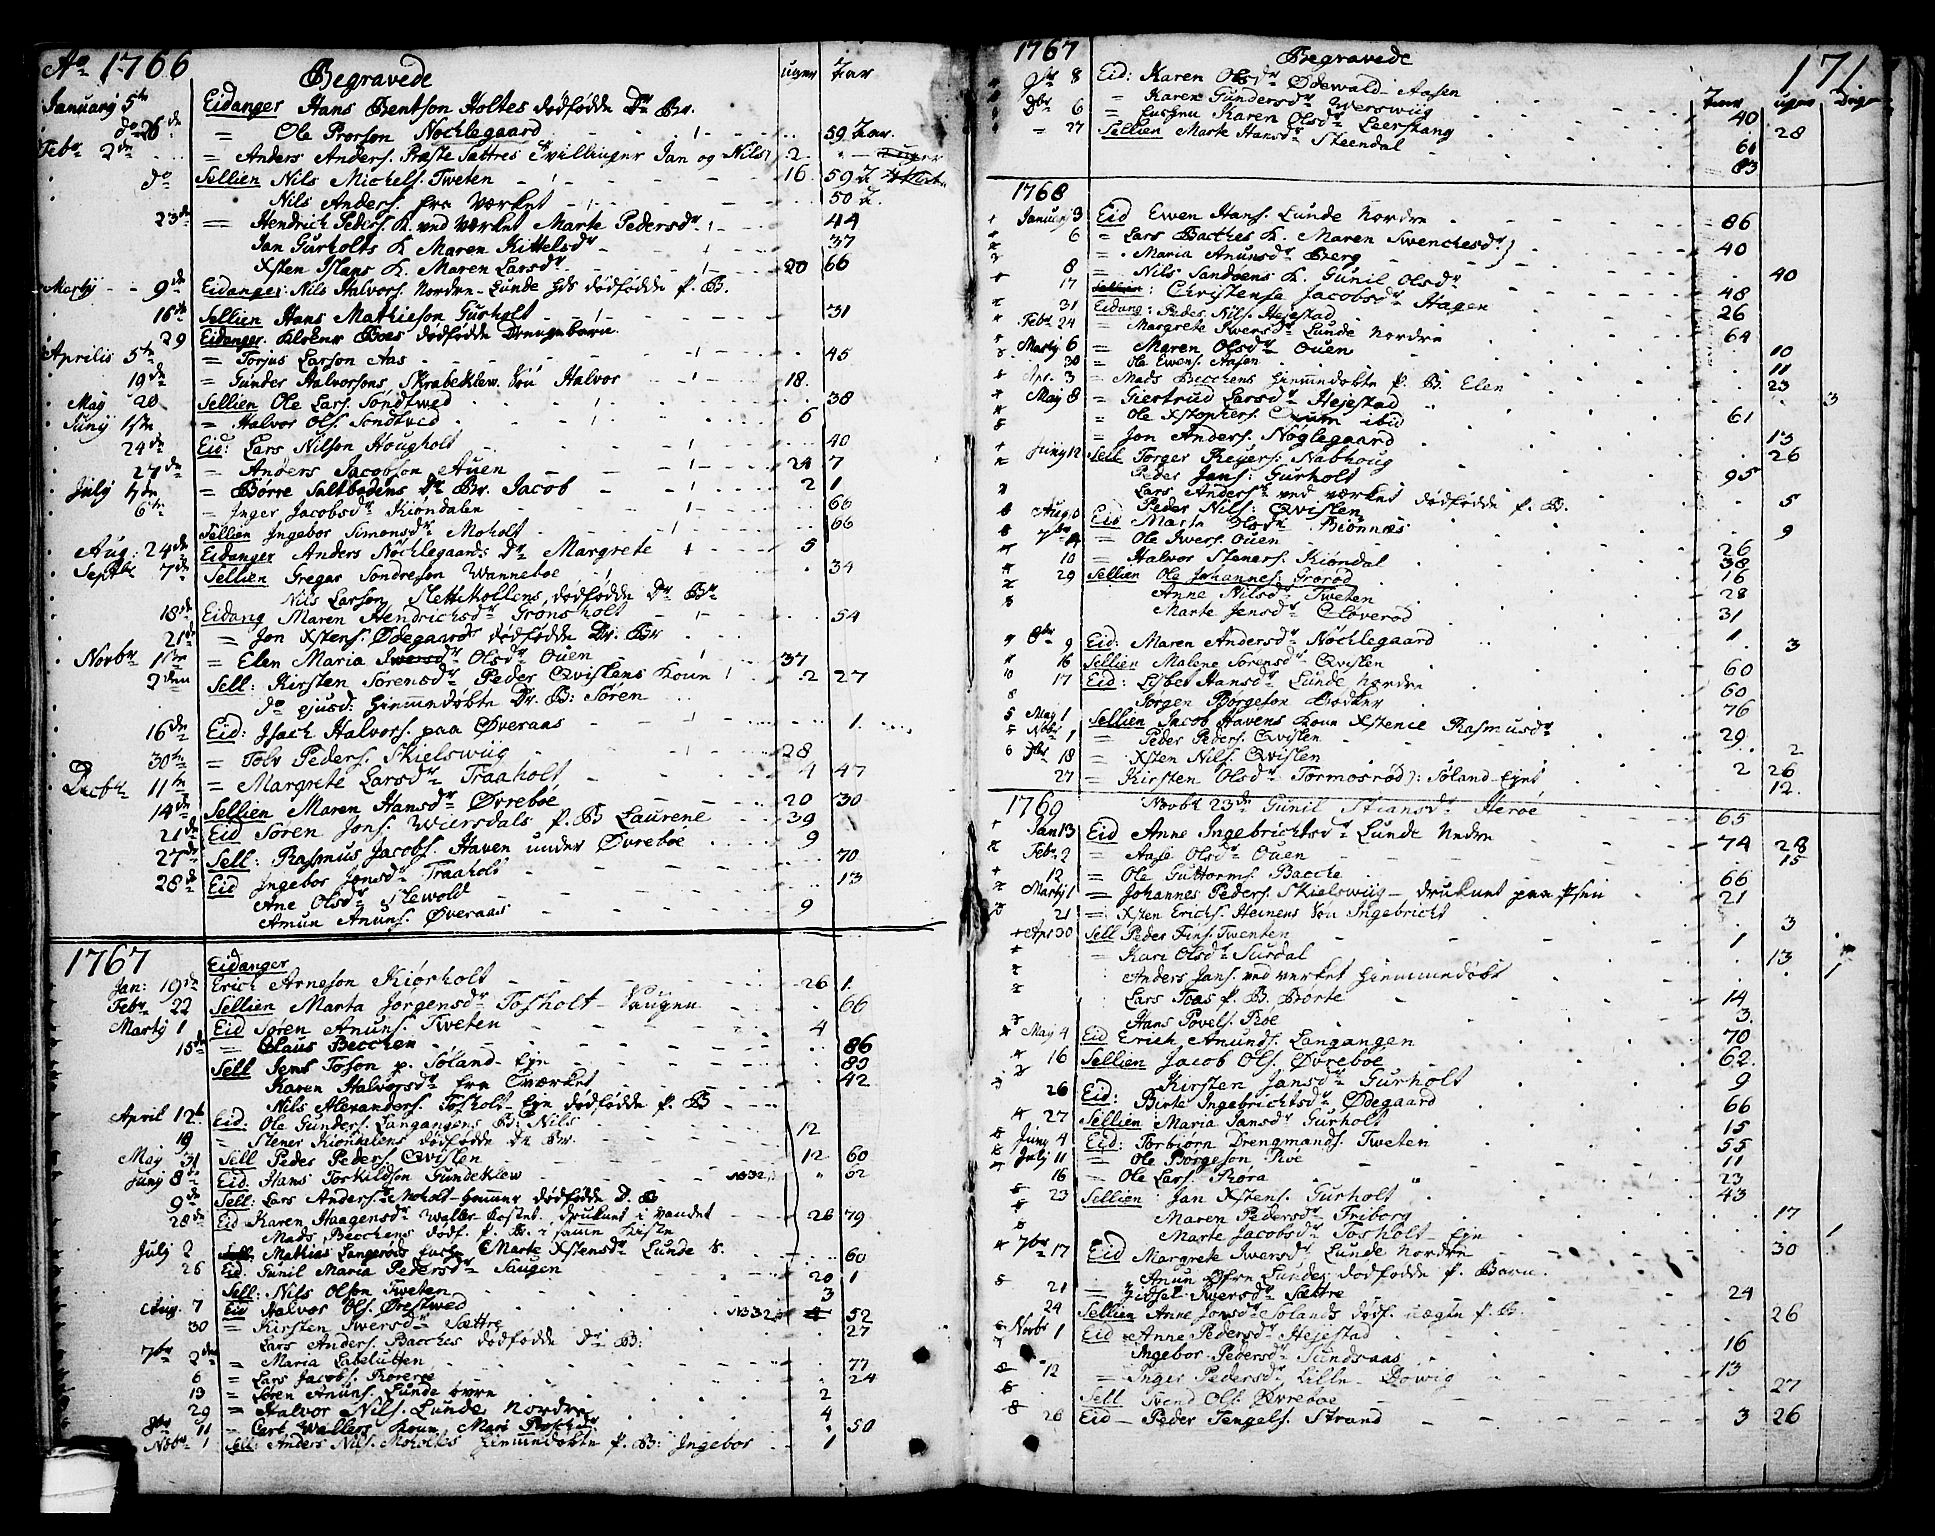 Ao 1766 Begravede uger Aar
Januarij 5te Eidanger Hans Bentson Holtes dødfødde Dr. Br.
do 26de = Ole Prorson Nøchlegaard 59 Aar.
Febr 2de = Anders Anders. Præste Sættres Tvillinger Jan og Nils 2
do Sellien Nils Michels. Tweten 16 59
Nils Anders. fra Værket 50
23de = Hendrich Peders. K. ved Værket Marte Pedersdr 44
Jan Gurholts K. Maren Kittelsdr 37
Xsten Islans K. Maren Larsdr 20 66
Martij 9de Eidanger: Nils Halvors. Nordre Lunde dødfødde P. B.
16de Sellien Hans Mathieson Gurholt 31
29 Eidanger Boes dødfødde Drengebarn
Aprilis 5te = Torjus Larson Aas 45
19de = Gunder Halvorsons Skrabeklew. Søn Halvor 18
May 20 Sellien Ole Lars. Søndtved 38
Junij 1ste = Halvor Ols. Sondtved 6
24de Eid: Lars Nilson Hougholt 40
27de = Anders Jacobson Auen 24 7
July 1ste = Børre Saltbodens Dr. Br. Jacob 2 1
6te = Inger Jacobsdr Kiøndalen 66
Sellien Ingebor Simensdr Moholt 66
Aug: 24de Eidanger Anders Nøchlegaards Dr. Margrete 5
Septbr 7de Sellien Gregar Sondreson Wanneboe 34
Nils Larson Slettekollens, dødfødde Dr. Br.
18de Eidang Maren Hendrichsdr Grønsholt 54
21de = Jon Xstens. Ødegaards dødfødde Dr. Br
Novbr 1ste = Elen Maria Olsdr Ouen 37
2den Sell: Kirsten Sørensdr Peder Qvislens Koun 2 27
do ejusd: Hiemmedøbte Dr. B: Søren
16de Eid: Isach Halvors. paa Øveraas 1
30te = Tolv Peders. Skielswiig 28
Decbr 11te = Margrete Larsdr Traaholt 4 47
14de Sellien Maren Hansdr Øvreboe 20 30
21de Eid Søren Jons. Wiersdals P. B Laurene 39
27de Sell: Rasmus Jacobs. Haven under Øvreboe 9 70
28de Eid Ingebor Jonsdr Traaholt 13
Ane Olsdr Slewold
Amun Anuns. Øveraas 9
1767 Eidanger
Jan: 19de Erich Arneson Kiørholt 26 1
Febr 22 Sellien Marta Jørgensdr Tosholt 66
Martij 1 Eid Søren Anuns. Tweten 4
15de = Claus Becchen 86
Sell Jens Toson p. Søland Eje 83
Karen Halvorsdr fra Værket 42
Nils Alexanders. Tosholt Eje dødfødde P. B
April 12te Eid: Ole Gunders. Langangens B: Nils 12
19 = Stener Kiøndalens dødfødde Dr Br.
May 31 Sell Peder Peders. Qvislen 12 60
Junij 8de Eid. Hans Torkildson Gundeklew 62
9de Sell: Lars Anders. Moholt dødfødde D. B
28de Eid Karen Haagensdr drukent i vandet 26 79
Mads Becchens dødf. P. Br.
Julij 2 Mathias Langerøds Marte Xstensdr Lunde 60
26 Eid. Gunil Maria Pedersdr Saugen 20 1
Sell: Nils Olson Tweten 3
Aug. 7 Eid Halvor Ols. Ørstwed 52
30 = Kirsten Iversdr Sættre 27
Lars Anders. Bacches dødfødde Dr B:
7br 2den = Maria Labelutten 77
6 = Lars Jacobs. Rorerøe 24
13 = Søren Anuns. Lunde øvre 2
29 = Halvor Nils. Lunde Nordre 4
8br 11 = Cort Wallers Koun Mari 50
Novbr 1 Sell: Anders Nils. Moholtes hiemmedøbte P. B: Ingebor 1
1767 Begravede 171
Aar uger Dage
9br 8 Eid: Karen Olsdr Ødewald Aasen 40
= Karen Gundersdr Versviig 28
Dbr 6 = Karen Olsdr Leerstang 61
= 27 Sellien Marte Hansdr Steendal 83
1768
Januarij 3 Eid Even Hans. Lunde Nordre 86
6 = Lars Bacches K. Maren Swenchesdr 40
= Maria Anunsdr Berg
8 = Nils Sandøens K. Gunil Olsdr 40
17 Christense Jacobsdr Hagen 48
31 Eidang: Peder Nils. Hejestad 26
Febr 24 = Margrete Iversdr Lunde Nordre 64
Martij 6 = Maren Olsdr Ouen 10
30 = Ole Ewens. Aasen 11
Apr. 3 = Mads Becchens hiemmedøbte P. B. Elen 23
May 8 = Giertrud Larsdr Hejestad 3
= Ole Xstophers. ibid 61
= Jon Anders. Nøglegaard 13
Junij 12 Sell Torger Reyers. Nabhoug 26
Peder Jans. Gurholt 95
Lars Anders. ved værket dødfødde P. B.
Peder Nils. Qvislen 5
Aug 6 Eid Marta Olsdr Biønnes
7br 4 = Ole Ivers. Ouen 9
10 = Halvor Steners. Kiøndal 26
29 Sellien Ole Johannes. Grorød 38
Anne Nilsdr Tweten 16
Marte Jensdr Cloverød 28
31
8br 9 Eid: Maren Andersdr Nøchlegaard 1
16 Sellien Malene Sørensdr Qvislen 3
17 Eid: Lisbet Hansdr Lunde Nordre 60
Jørgen Børgeson Bødker 60
May 1 Sellien Jacob Havens Koun Xstence Rasmusdr 76
Novbr 1 = Peder Peders. Qvislen 29
Dbr 18 = Xsten Nils. Qvislen 2
27 = Kirsten Olsdr Tormosrød): Søland Ejet 2 26
Novbr 23de Gunil Stiansdr Herøe 12
1769 65
Jan 13 Eid Anne Ingebrichtsdr Lunde Nedre 74 28
Febr 2 = Aase Olsdr Ouen 15
12 = Ole Guttorms. Bacche 66
Martij 1 = Johannes Peders. Skielswiig - druknet paa Isen 21
21 = Xsten Erichs. Heinens Søn Ingebricht
Apr 30 Sell Peder Fins. Twenten 3
= Kari Olsdr Surdal 1
Anders Jans. ved verket hiemmedøbt 13
Lars Toas P. B. Borte 14
Hans Povels. Røe 3
May 4 Eid Erich Amunds. Langangen 70
16 Sellien Jacob Ols. Øvreboe 62
Kirsten Jansdr Gurholt 9
26 Eid: Birte Ingebrichtsdr Ødegaard 66
27 Sellien Maria Jansdr Gurholt 15
Junij 4 Eid: Torbiørn Drengmands. Tweten 55
Julij 11 = Ole Børgeson Røe 11
16 = Ole Lars. Røra 23
23 Sellien: Jan Xstens. Gurholt 43
Maren Pedersdr Friborg 17
Marte Jacobsdr Tosholt Eje 1
7br 17 Eid Margrete Iversdr Lunde Nordre 30
Anun Øfre Lundes dødfødde P. Barn
21 = Zidsel Iversdr Sættre 24
24 Sellien Anne Jonsdr Solands dødf. uægte P. B. 26
Novbr 1 Eid Anne Pedersdr Hejestad
Ingebor Pedersdr Sundsaas 16
12 = Inger Pedersdr Lille Dowig 13
Sell Svend Ols. Øvreboe 27
26 Eid Peder Tengels. Strand 3 26